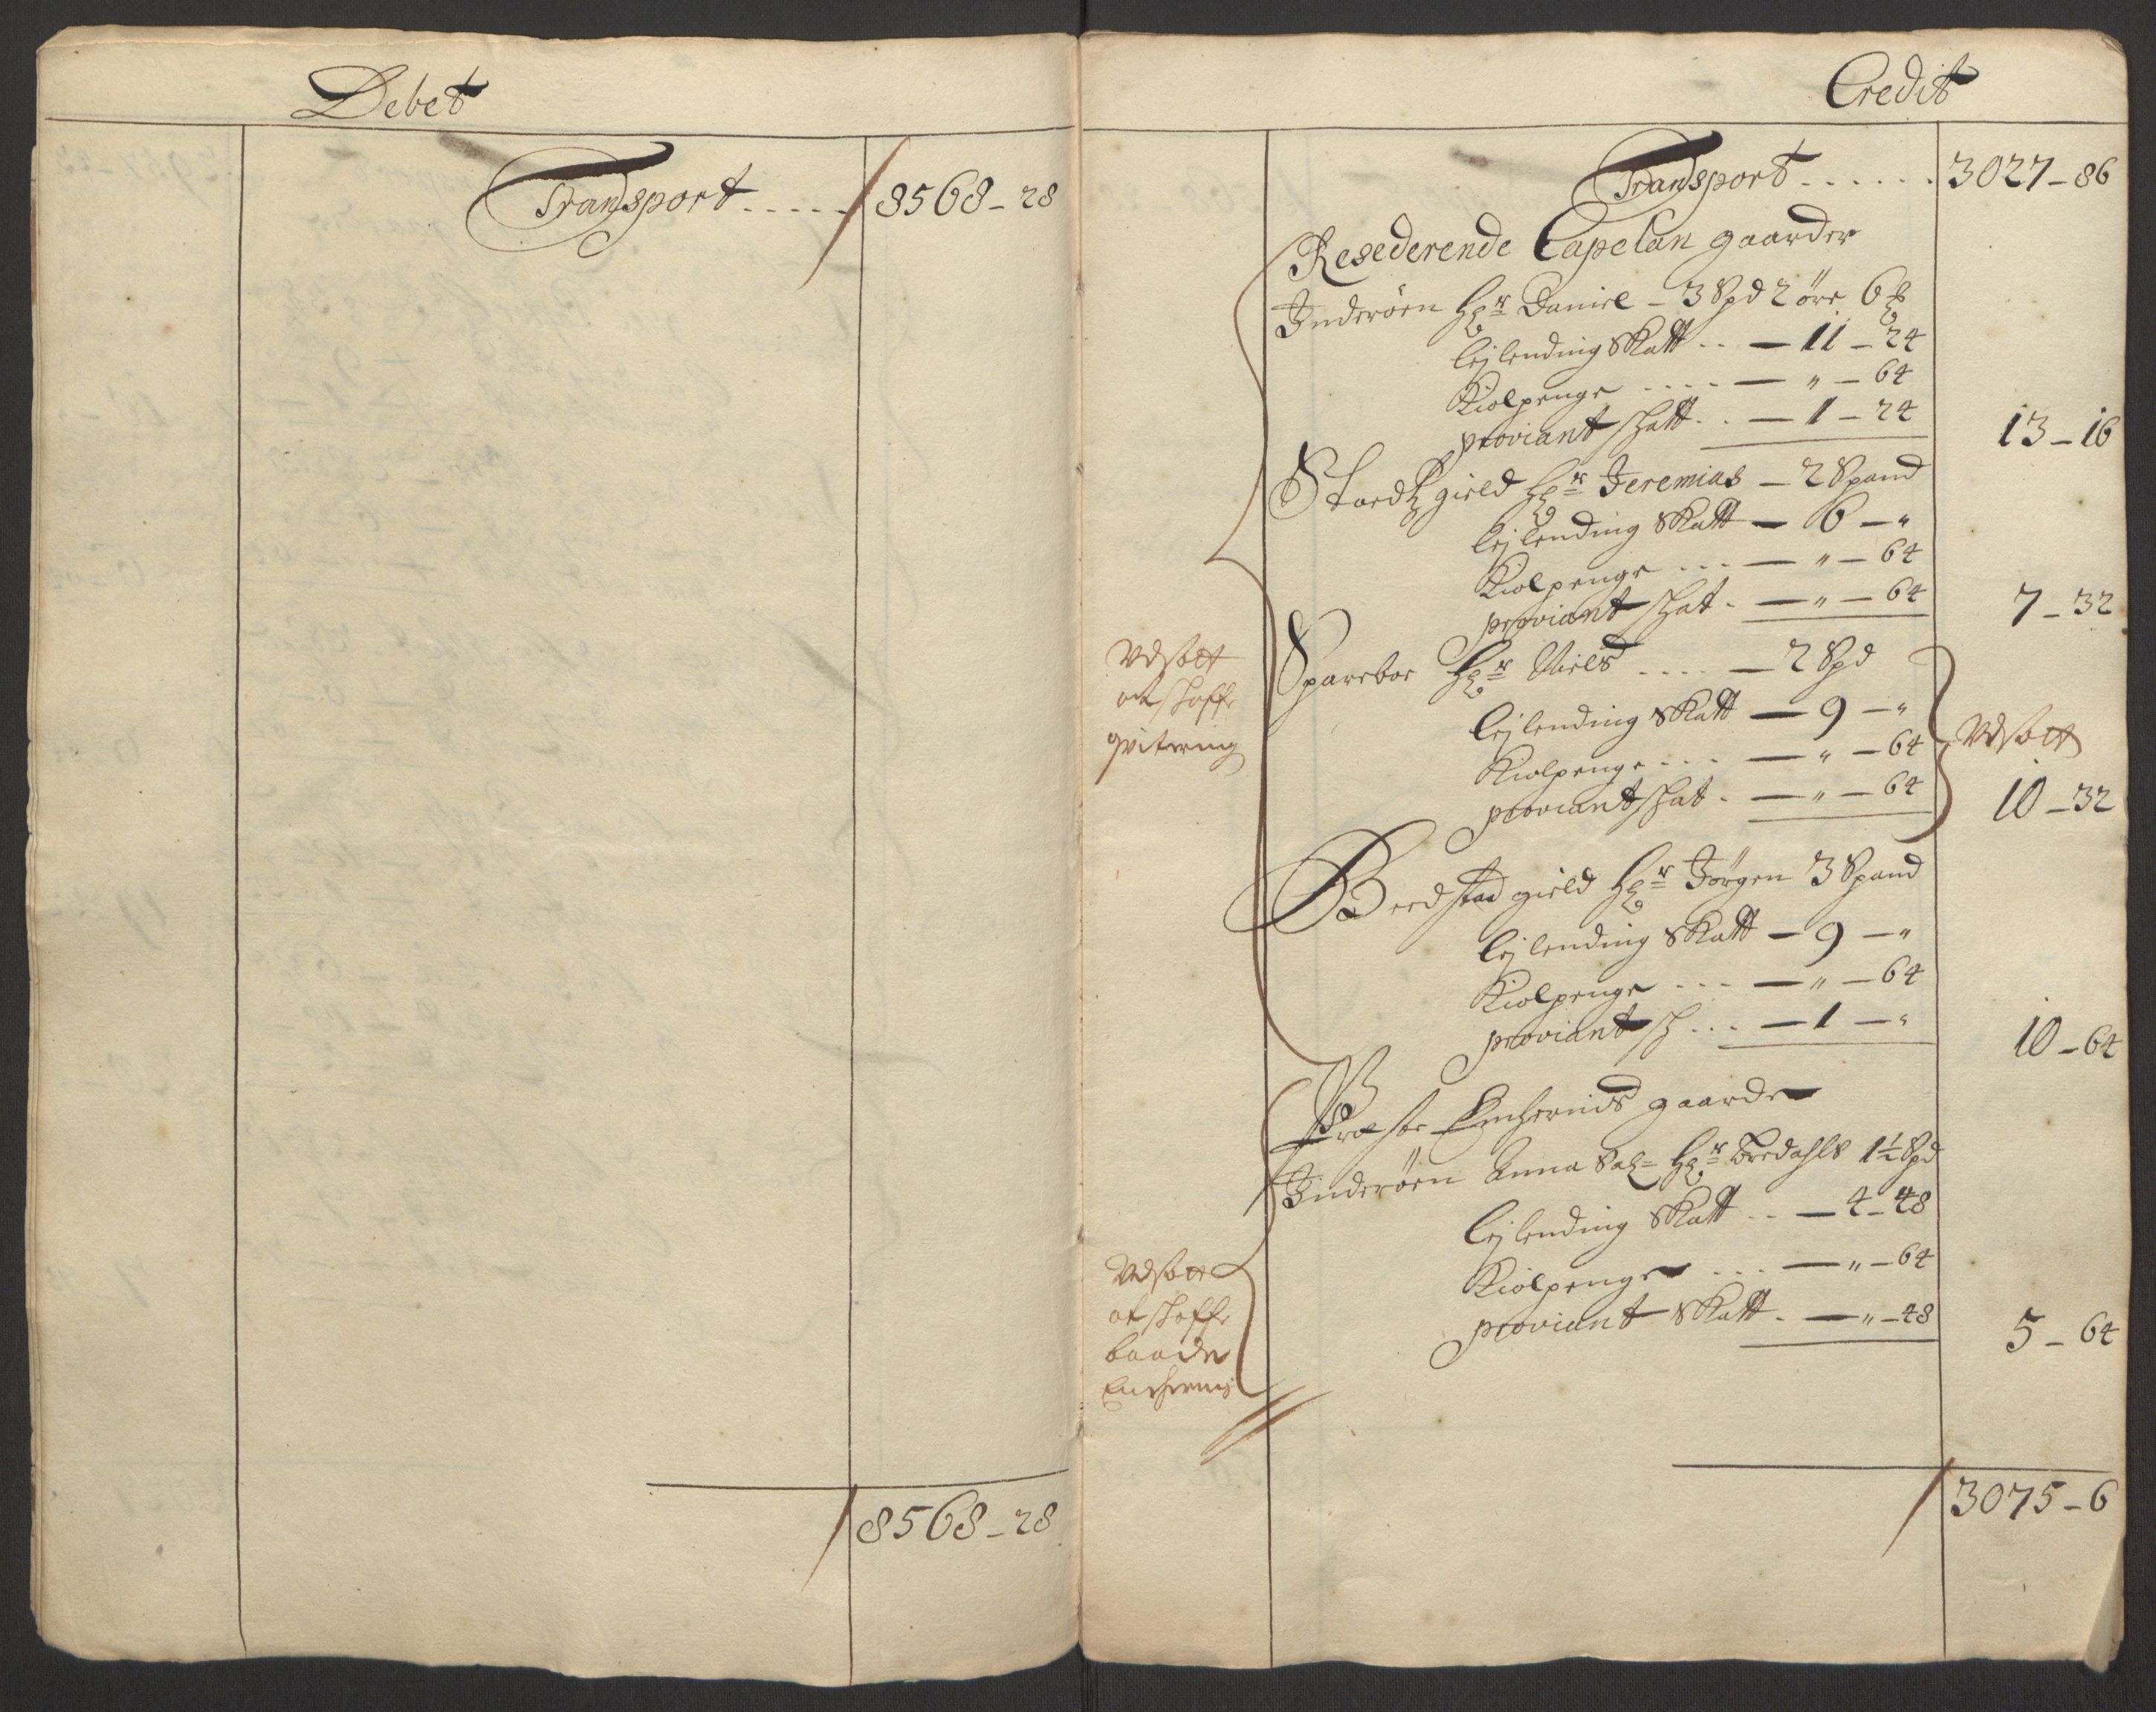 Debet
Transport ..... 8568 - 28
8568 - 28
Credit
Transport ...... 3027 - 86
Resederende Capelan gaarder
Inderöen Hr Daniel - 3 Spd 2 öre 6
lejlending Skatt .. — 11 - 24
Kiolpenge .... — " — 64
proviant skatt .. — 1 — 24
13 - 16
gield Hr Jeremias — 2 Spand
lejlending Skatt — 6 — "
Kiolpenge ... — " — 64
proviant skat . — " — 64
7 - 32
Vdsatt
at skaffe
qvitering
Sparboe Hr Niels .... — 2 Spd
lejlending Skatt — 9 — "
Kiolpenge ... — " — 64
Vdsatt
proviant skat . — " — 64
10 - 32
Beedstad gield Hr Jörgen 3 Spand
lejlending Skatt — 9 — "
Kiolpenge ... — " — 64
proviant sk ... — 1 — "
10 - 64
Præste Enchernis gaarde
Inderöen Anna Sal= Hr Bredahls 1½ Spd
lejlending Skatt .. — 4 - 48
Kiolpenge ... — " — 64
proviant Skatt . — " — 48
5 - 64
Vdsatt
at skaffe
baade
Enchernis
3075 - 6